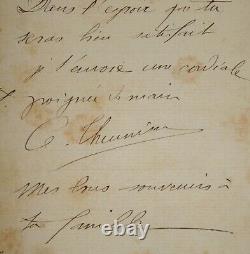 Dans l'espoir que tu
seras bien satisfait
je t'envoie une cordiale
poignée de main
C. Theunissen
Mes bons souvenirs à
ta famille